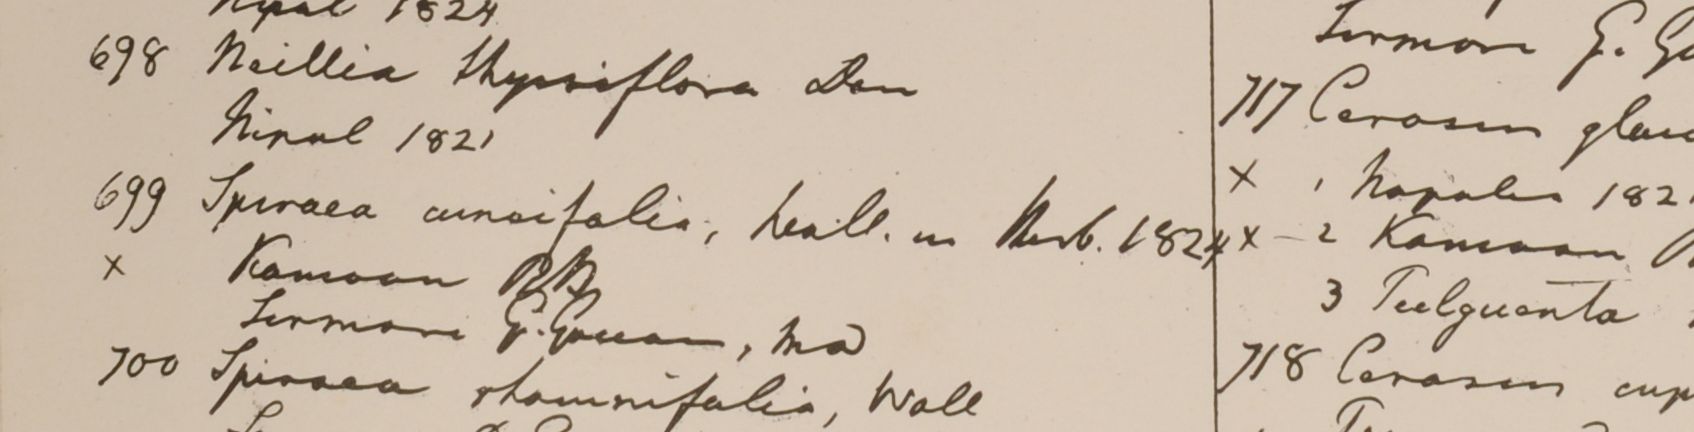 Nipal 1824
698 Neillia thyrsiflora Don
Nipal 1821
699 Spiraea cuneifolia, Wall. in Herb. 1824
x Kamoon RB
Sirmore G. Govan, MD
700 Spiraea rhamnifolia, Wall
Sirmore G. Go
717 Cerasus glau
x 1 Napalia 182
x - 2 Kamoon
3 Tulguanta
718 Cerasus cup